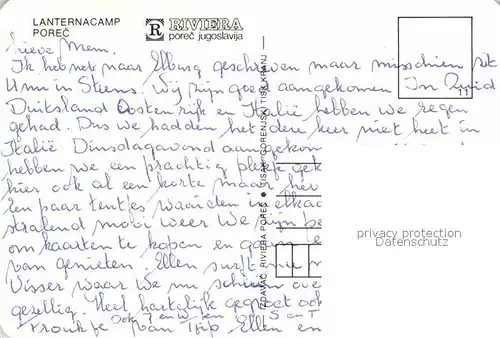 LANTERNACAMP
POREČ
R RIVIERA
poreč jugoslavija
Lieve Mem.
Ik heb net naar Elburg geschreven maar misschien zit
U nu in Steens. Wij zijn goed aangekomen In Zuid
Duitsland Oostenrijk en Italië hebben we regen
gehad. Dus we hadden het deze keer niet heet in
Italië Dinsdagavond aangekom
hebben we een prachtig plekje gek
hier ook al een korte maar hev
Een paar tentjes waaiden in elkaa
stralend mooi weer We zijn
om kaarten te kopen en gaan
van genieten. Ellen surft nu
Visser waar we nu schuin ove
gezellig. Heel hartelijk gegroet ook
Froukje van Ellen en
Ook J en W en S en T
IZDAVAČ RIVIERA POREČ • TISAK GORENJSKI TISK KRANJ
11
privacy protection
Datenschutz